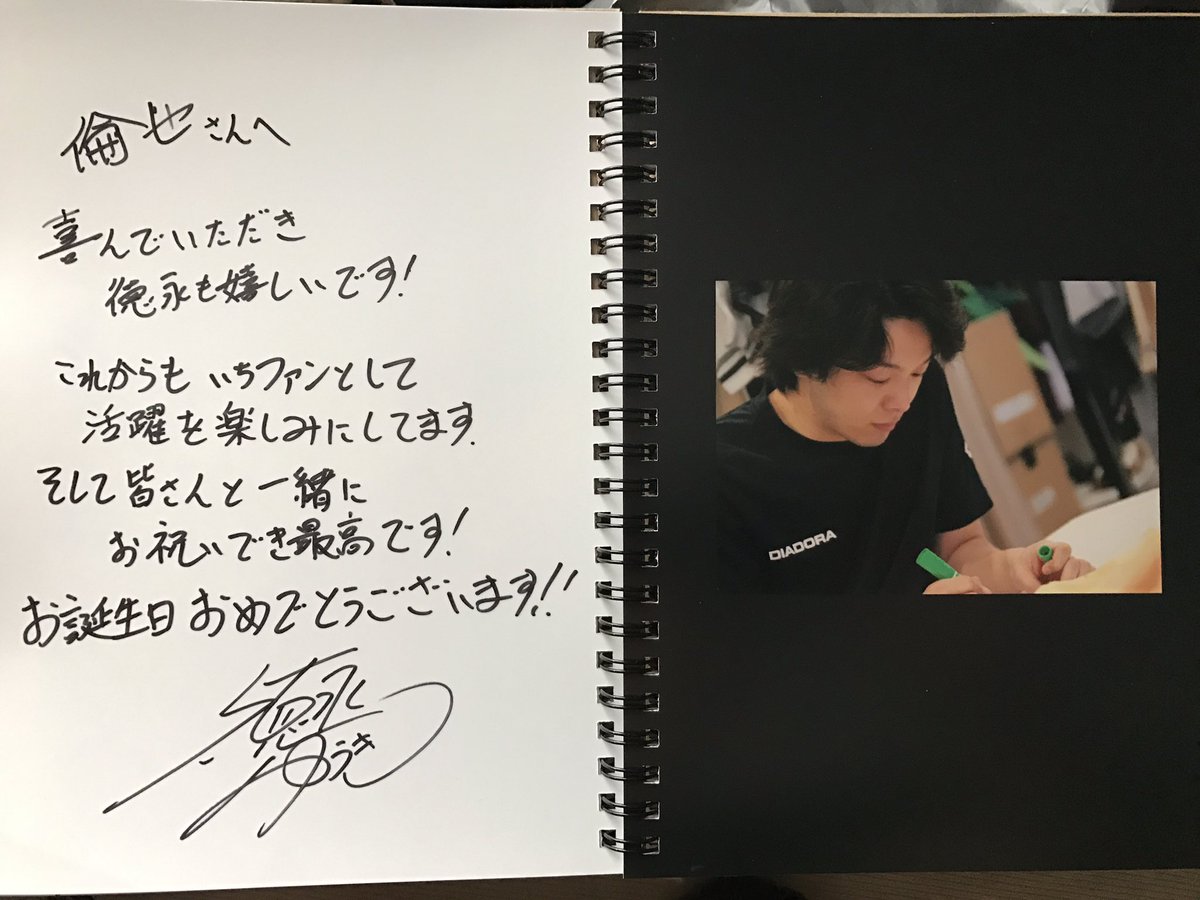 倫也さんへ
喜んでいただき
徳永も嬉しいです!
これからも いちファンとして
活躍を楽しみにしてます.
そして皆さんと一緒に
お祝いでき最高です!
お誕生日 おめでとうございます!!
徳永
ゆうき
DIADORA